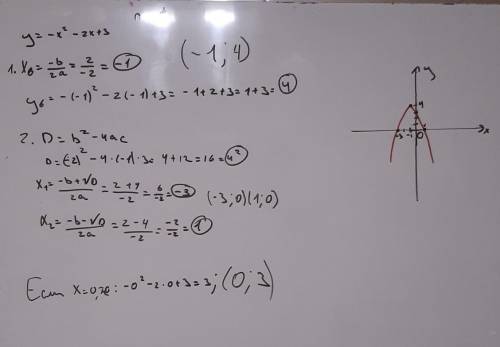 y = -x² - 2x + 3
1. Xв = -b/2a = 2/-2 = -1
(-1; 4)
yв = -(-1)² - 2(-1) + 3 = -1 + 2 + 3 = 1 + 3 = 4
2. D = b² - 4ac
D = (-2)² - 4·(-1)·3 = 4 + 12 = 16 = 4²
X₁ = -b+√D/2a = 2+4/-2 = 6/-2 = -3
(-3; 0) (1; 0)
X₂ = -b-√D/2a = 2-4/-2 = -2/-2 = 1
Если x = 0, то: -0² - 2·0 + 3 = 3; (0; 3)
y
4
-3 -1 0 1 x